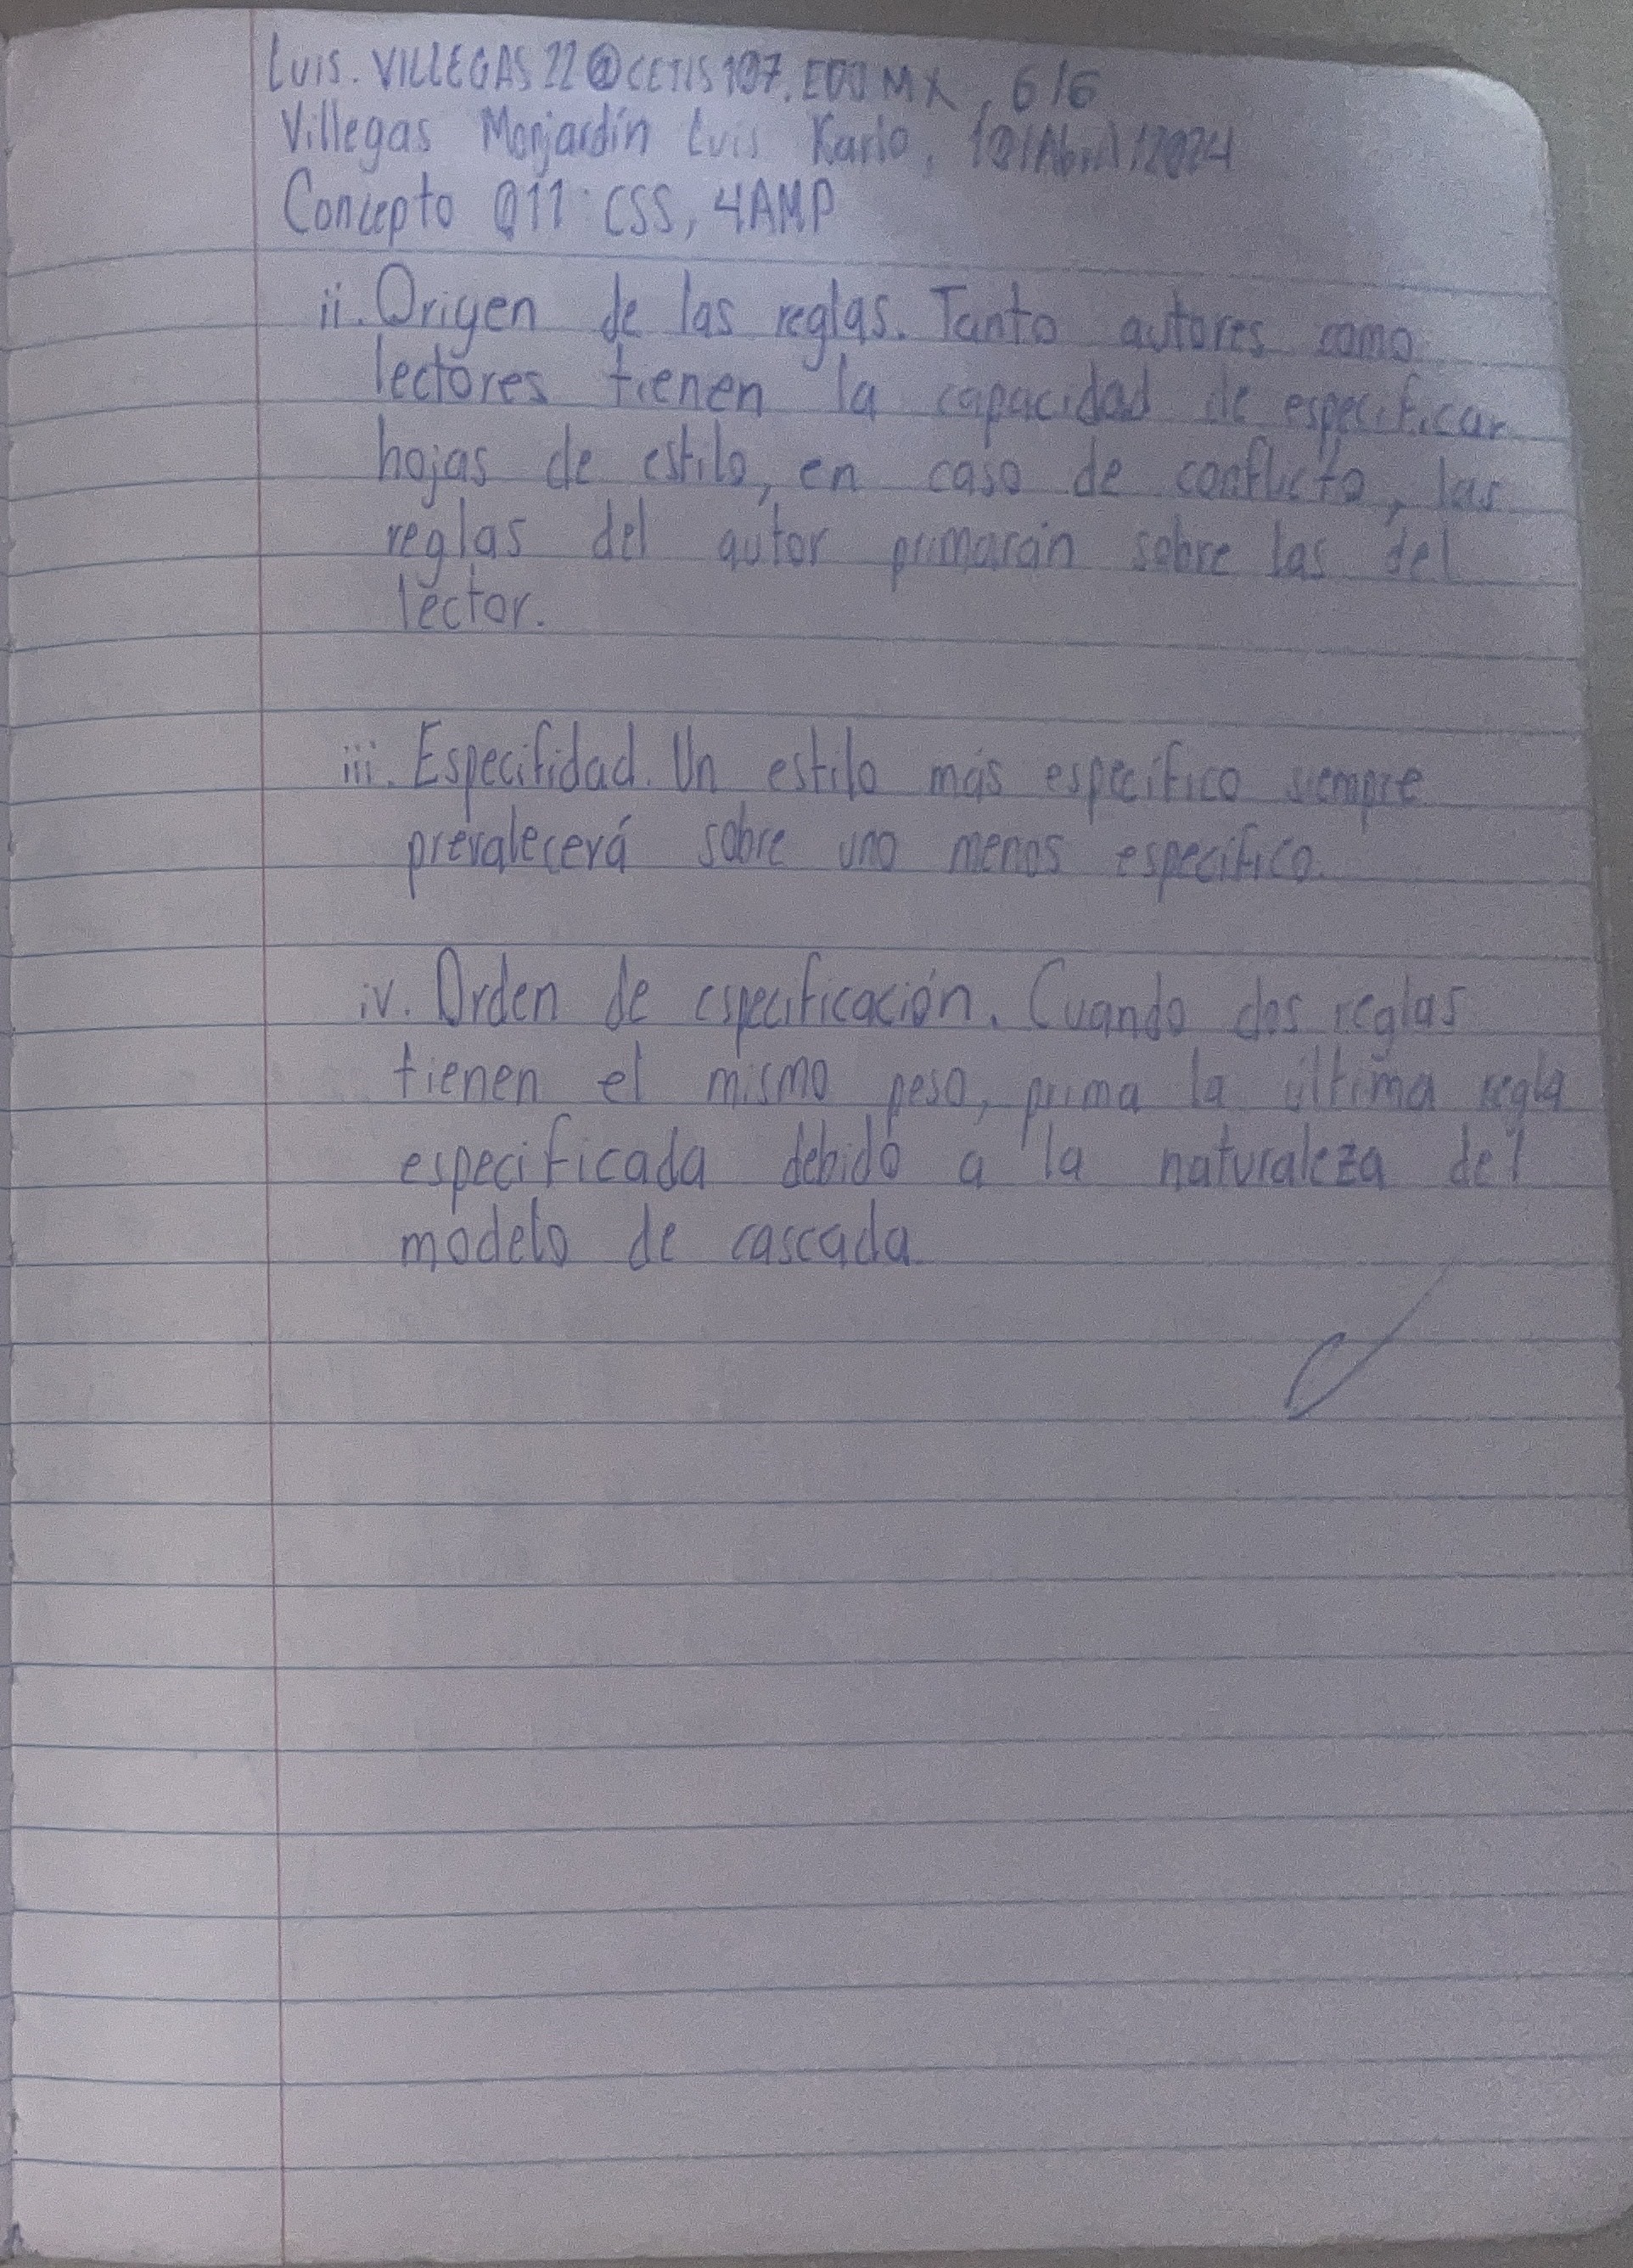 Luis.VILLEGAS22@CETIS107.EDU MX, 6/6
Villegas Monjardín Luis Karlo, /Abril/2024
Concepto 011: CSS, 4AMP
ii. Origen de las reglas. Tanto autores como
lectores tienen la capacidad de especificar
hojas de estilo, en caso de conflicto, las
reglas del autor primarán sobre las del
lector.
iii. Especifidad. Un estilo más específico siempre
prevalecerá sobre uno menos específico.
iv. Orden de especificación. Cuando dos reglas
tienen el mismo peso, prima la última regla
especificada debido a la naturaleza del
modelo de cascada